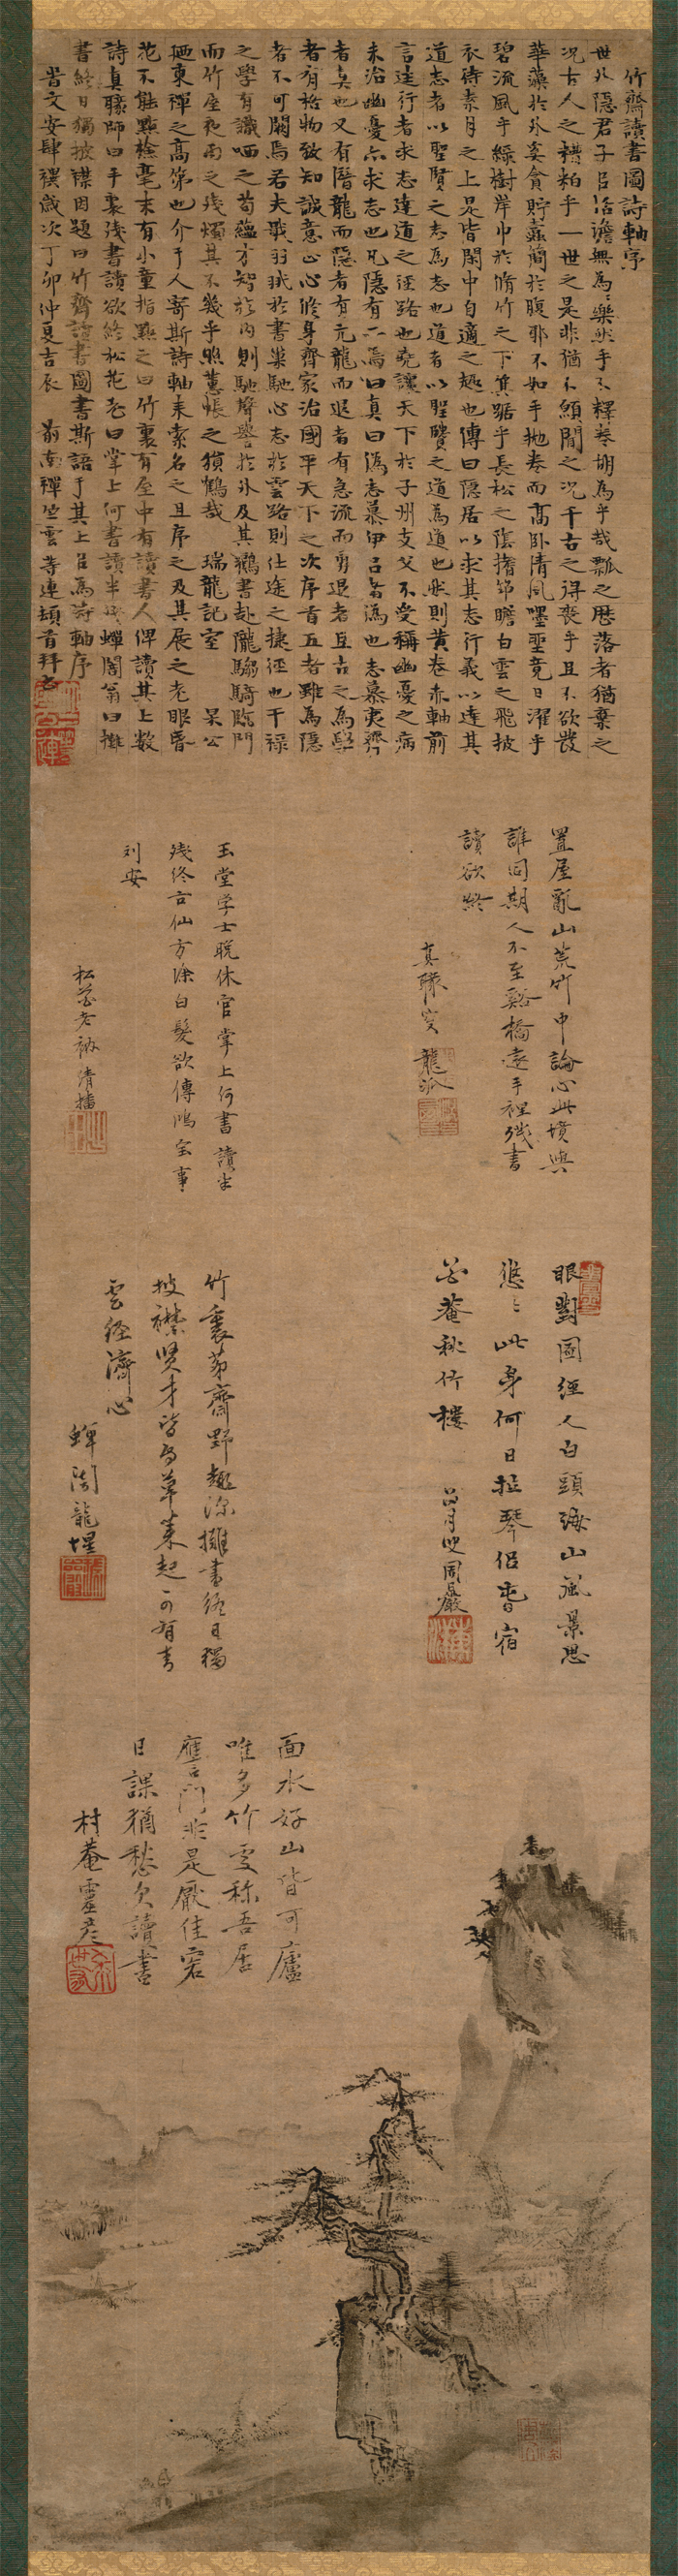 竹齋讀書圖詩軸序
世外隱君子居恬澹無為之樂然手不釋卷胡為乎哉瓢之歷落者猶棄之
況古人之糟粕乎一世之是非猶不傾聞之況千古之得喪乎且不欲發
華藻於外奚貪貯蠹簡於腹耶不如手拋卷而高臥清風嘿聖竟日濯乎
碧流風乎綠樹岸巾於脩竹之下箕踞乎長松之陰搘笻瞻白雲之飛披
衣待素月之上是皆閑中自適之趣也傳曰隱居以求其志行義以達其
道志者以聖賢之志為志也道者以聖賢之道為道也然則黃卷赤軸前
言往行者求志達道之徑路也堯讓天下於子州支父不受稱幽憂之病
未治幽憂亦求志也凡隱有二焉曰真曰偽志慕伊呂者偽也志慕夷齊
者真也又有潛龍而隱者有亢龍而退者有急流而勇退者且古之為學
者有格物致知誠意正心脩身齊家治國平天下之次序首五者雖為隱
者不可闕焉若夫戢羽 於書巢馳心志於雲路則仕途之捷徑也干祿
之學有識哂之苟蘊才智於內則馳聲譽於外及其鶴書赴隴騶騎臨門
而竹屋夜雨之殘燭其不幾乎照蕙帳之猿鶴哉 瑞龍記室 杲公
廼東禪之高第也介于人寄斯詩軸來索名之且序之及其展之老眼昏
花不能點檢毫末有小童指點之曰竹裏有屋屋中有讀書人俾讀其上數
詩真 師曰手裏殘書讀欲終松花老曰掌上何書讀半殘蟬闇翁曰攤
書終日獨披襟因題曰竹齋讀書圖書斯語于其上以為詩軸序
旹文安肆禩歲次丁卯仲夏吉辰 前南禪竺雲等連頓首拜書
置屋亂山荒竹中論心此境與
誰同期人不至谿橋遠手裡殘書
讀欲終
真 叟 龍派
玉堂学士晚休官掌上何書讀半
殘終古仙方塗白髮欲傳鴻宝事
刘安
松花老衲清播
眼對圖經人白頭海山風景思
悠々此身何日拉琴侶重宿
花菴秋竹樓
呂月叟周嚴
竹裏茅齋野趣深攤書終日獨
披襟賢才皆為草萊起可有書
雲経濟心
蟬闇龍惺
面水好山皆可廬
唯多竹處称吾居
應門非是厭佳客
日課猶愁欠讀書
村菴靈彦